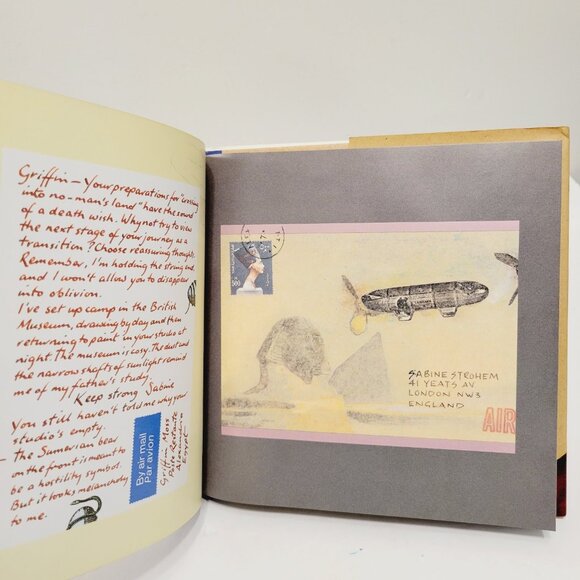 Griffin — Your preparations for "crossing
into no-man's land" have the sound
of a death wish. Why not try to view
the next stage of your journey as a
transition? Choose reassuring thoughts.
Remember, I'm holding the string end,
and I won't allow you to disappear
into oblivion.
I've set up camp in the British
Museum, drawing by day and then
returning to paint in your studio at
night. The museum is cosy. The dust and
the narrow shafts of sunlight remind
me of my father's study.
Keep strong Sabine
You still haven't told me why your
studio's empty.
The Sumerian bear
on the front is meant to
be a hostility symbol.
But it looks melancholy
to me.
By air mail
Par avion
Griffin Moss
Poste Restante
Alexandria
Egypt
500
SABINE STROHEM
41 YEATS AV
LONDON NW3
ENGLAND
AIR